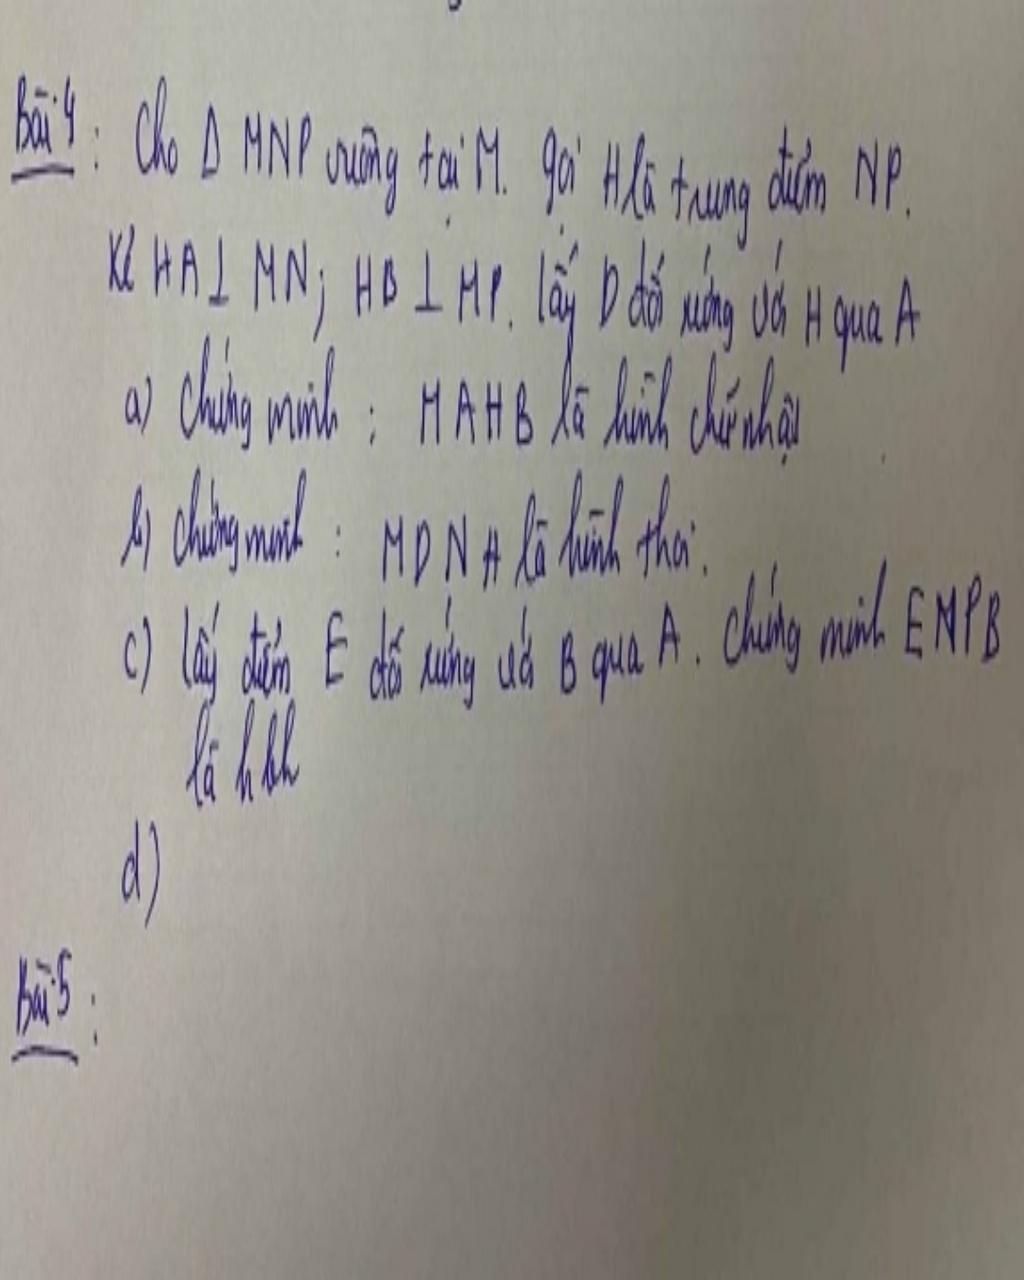 Bài 4: Cho Δ MNP vuông tại M. gọi H là trung điểm NP.
Kẻ HA⊥ MN; HB ⊥ MP. lấy D đối xứng với H qua A
a) Chứng minh: MAHB là hình chữ nhật
b) chứng minh: MDNH là hình thoi.
c) lấy điểm E đối xứng với B qua A. Chứng minh ENPB
là hbh
d)
Bài 5: